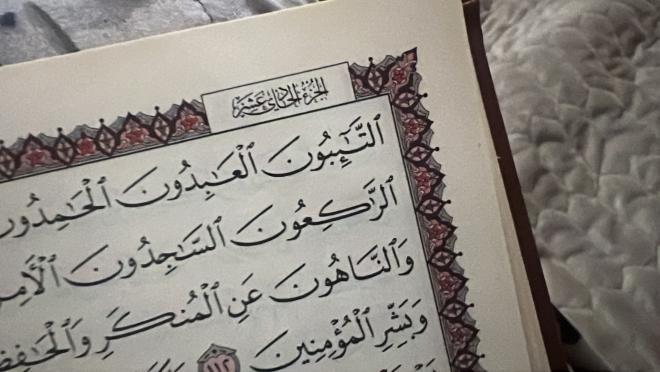 الجزء الحادي عشر
ٱلتَّـٰٓئِبُونَ ٱلْعَـٰبِدُونَ ٱلْحَـٰمِدُونَ
ٱلرَّٰكِعُونَ ٱلسَّـٰجِدُونَ
وَٱلنَّاهُونَ عَنِ ٱلْمُنكَرِ
وَبَشِّرِ ٱلْمُؤْمِنِينَ ١١٢